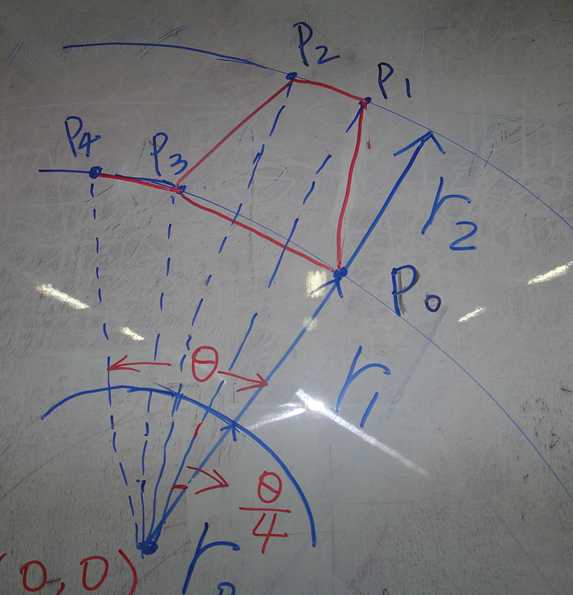 P2
P1
P4
P3
r2
P0
θ
r1
θ/4
(0,0)
r